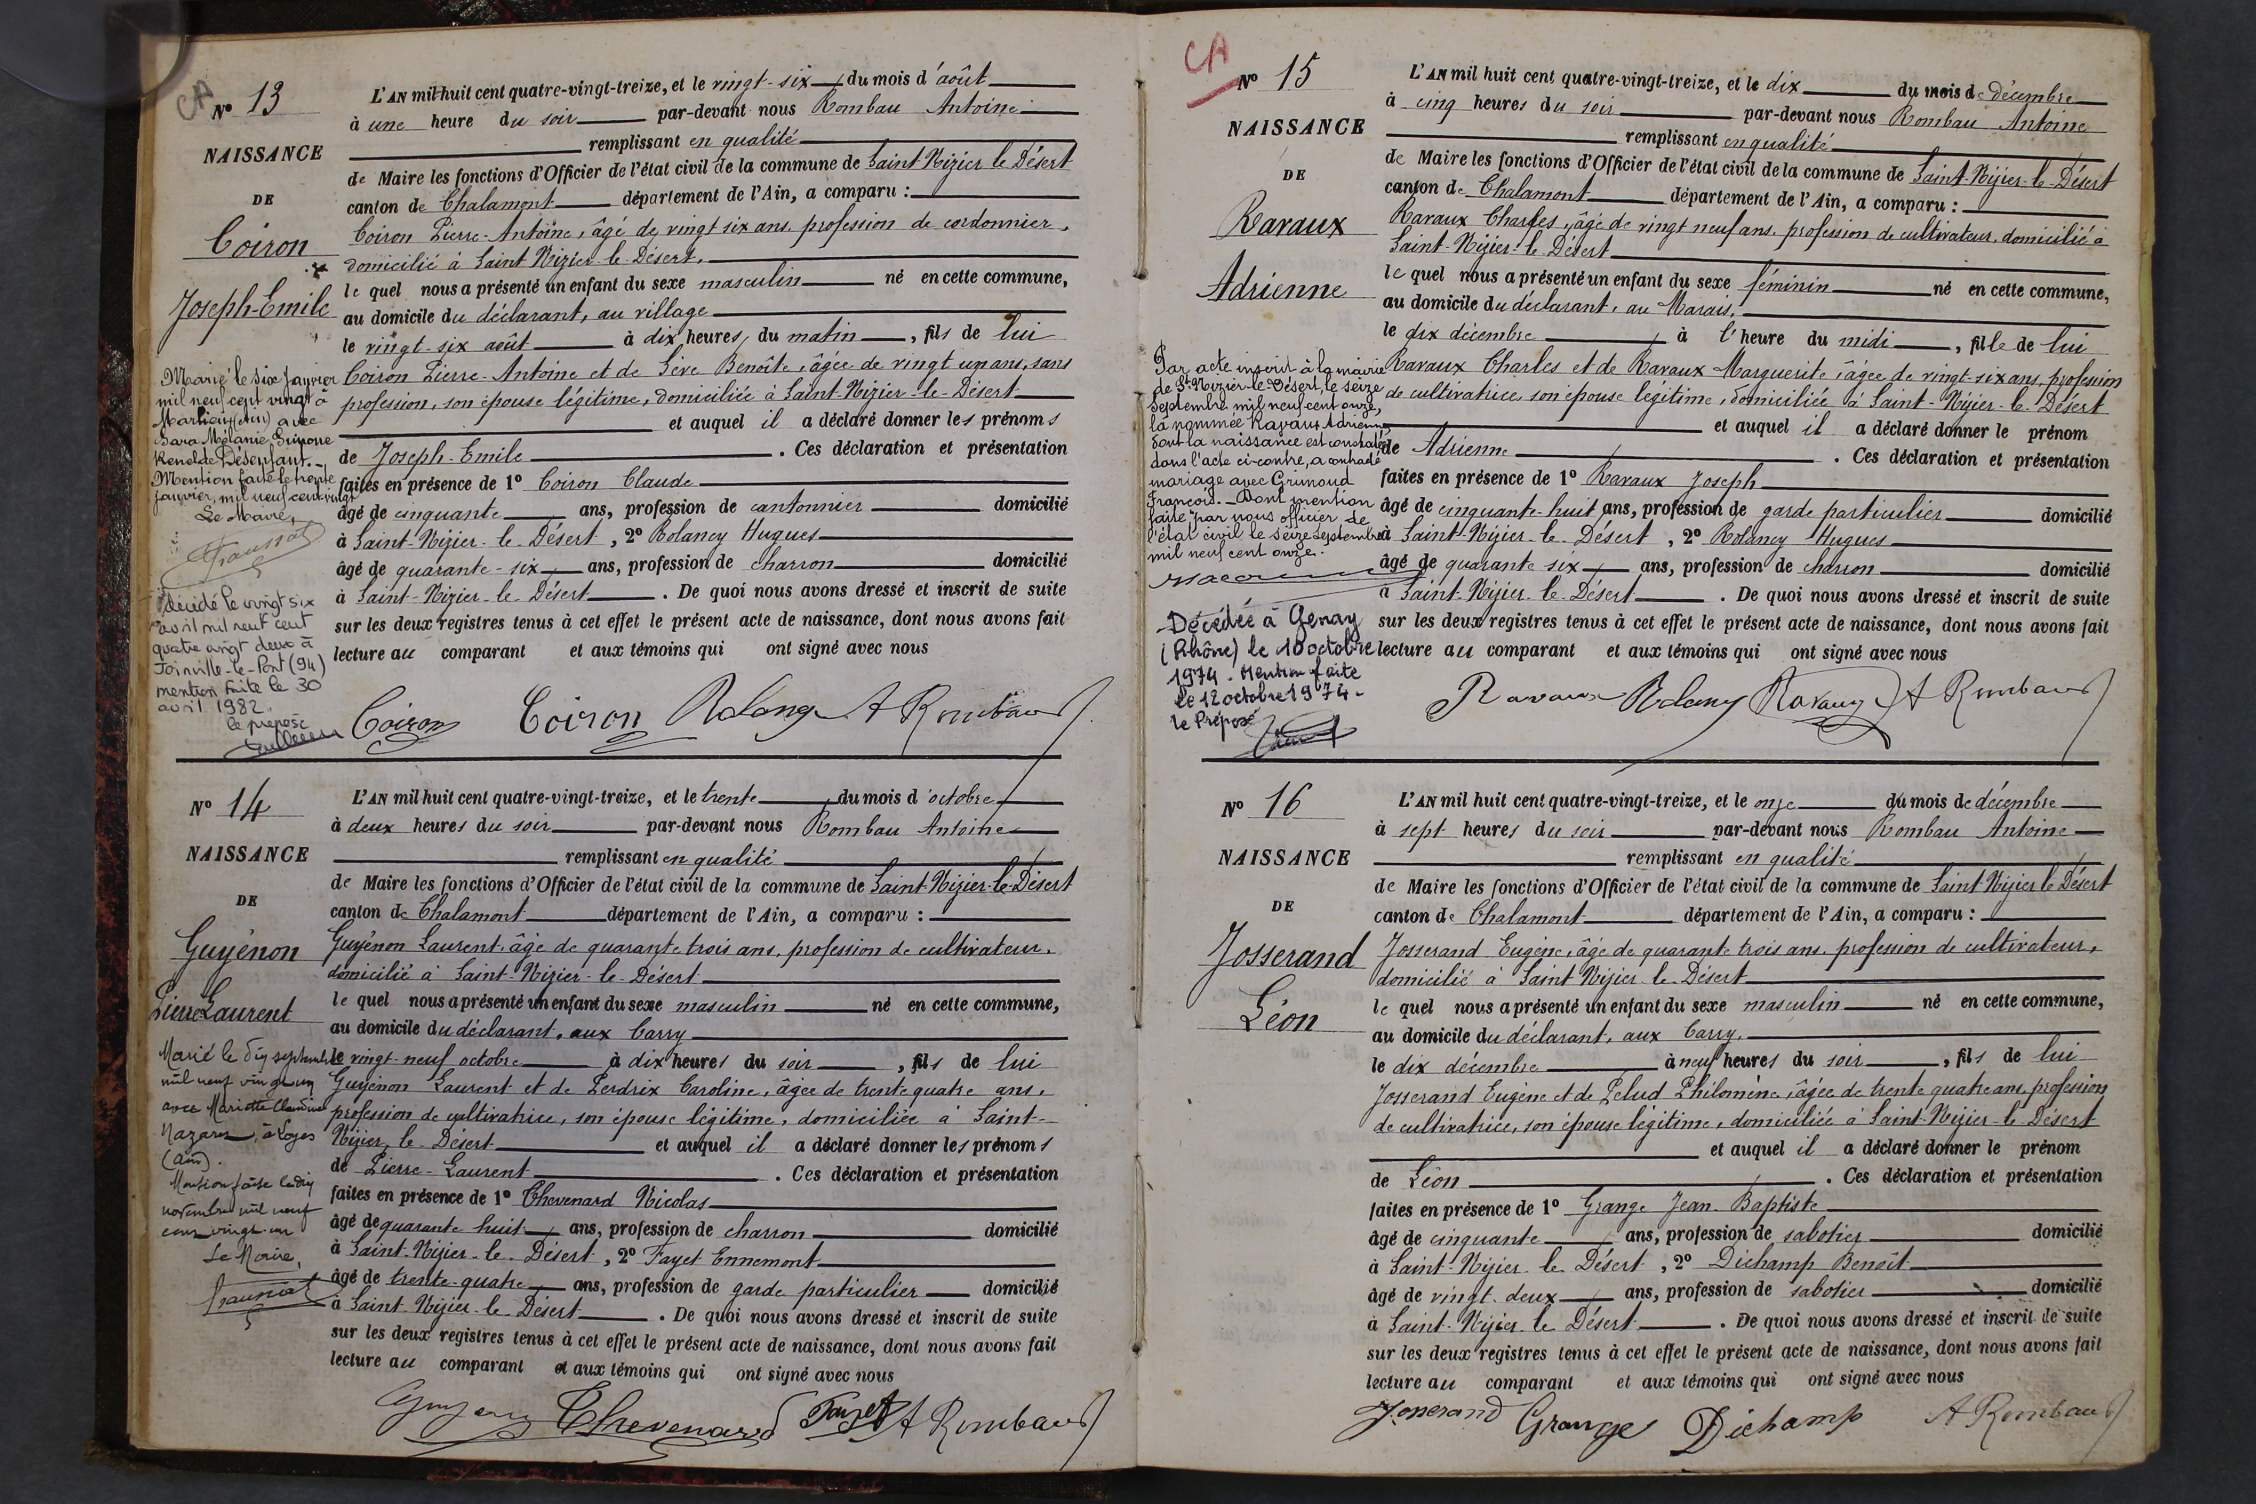 CA
Nº 13
NAISSANCE
DE
Coiron
Joseph-Emile
Marié le six janvier
mil neuf cent vingt à
Marlieux (Ain) avec
Sara Mélanie
Désenfant.
Mention faite le trente
janvier, mil neuf cent vingt
Le Maire,
décédé le vingt six
avril mil neuf cent
quatre vingt deux à
Joinville-le-Pont (94)
mention faite le 30
avril 1982.
le préposé
L'AN mil huit cent quatre-vingt-treize, et le vingt-six du mois d'août
à une heure du soir par-devant nous Rombau Antoine
remplissant en qualité
de Maire les fonctions d'Officier de l'état civil de la commune de Saint Nizier le Désert
canton de Chalamont département de l'Ain, a comparu :
Coiron Pierre-Antoine, âgé de vingt six ans, profession de cordonnier,
domicilié à Saint Nizier le Désert,
le quel nous a présenté un enfant du sexe masculin né en cette commune,
au domicile du déclarant, au village
le vingt-six août à dix heures du matin, fils de lui
Coiron Pierre-Antoine et de Sève Benoîte, âgée de vingt un ans, sans
profession, son épouse légitime, domiciliée à Saint-Nizier-le-Désert
et auquel il a déclaré donner les prénoms
de Joseph-Emile. Ces déclaration et présentation
faites en présence de 1º Coiron Claude
âgé de cinquante ans, profession de cantonnier domicilié
à Saint-Nizier-le-Désert, 2º Bolancy Hugues
âgé de quarante-six ans, profession de charron domicilié
à Saint-Nizier-le-Désert. De quoi nous avons dressé et inscrit de suite
sur les deux registres tenus à cet effet le présent acte de naissance, dont nous avons fait
lecture au comparant et aux témoins qui ont signé avec nous
Coiron Coiron Rolancy A Rombau
Nº 14
NAISSANCE
DE
Guyénon
Pierre-Laurent
Marié le dix septembre
mil neuf vingt un
avec Mariette Claudine
Nazaren, à Loyes
(Ain).
Mention faite le dix
novembre mil neuf
cent vingt-un
Le Maire,
L'AN mil huit cent quatre-vingt-treize, et le trente du mois d'octobre
à deux heures du soir par-devant nous Rombau Antoine
remplissant en qualité
de Maire les fonctions d'Officier de l'état civil de la commune de Saint-Nizier-le-Désert
canton de Chalamont département de l'Ain, a comparu :
Guyénon Laurent, âgé de quarante trois ans, profession de cultivateur,
domicilié à Saint-Nizier-le-Désert
le quel nous a présenté un enfant du sexe masculin né en cette commune,
au domicile du déclarant, aux Carry
le vingt-neuf octobre à dix heures du soir, fils de lui
Guyénon Laurent et de Perdrix Caroline, âgée de trente quatre ans,
profession de cultivatrice, son épouse légitime, domiciliée à Saint-
Nizier le Désert et auquel il a déclaré donner les prénoms
de Pierre-Laurent. Ces déclaration et présentation
faites en présence de 1º Chevenard Nicolas
âgé de quarante huit ans, profession de charron domicilié
à Saint-Nizier-le-Désert, 2º Fayet Ennemont
âgé de trente-quatre ans, profession de garde particulier domicilié
à Saint Nizier-le-Désert. De quoi nous avons dressé et inscrit de suite
sur les deux registres tenus à cet effet le présent acte de naissance, dont nous avons fait
lecture au comparant et aux témoins qui ont signé avec nous
Guyénon Chevenard Fayet A Rombau
CA
Nº 15
NAISSANCE
DE
Ravaux
Adrienne
Par acte inscrit à la mairie
de St Nizier-le-Désert, le seize
septembre mil neuf cent onze,
la nommée Ravaux Adrienne
dont la naissance est constatée
dans l'acte ci-contre, a contracté
mariage avec Grimond
François. Dont mention
faite par nous officier de
l'état civil le seize septembre
mil neuf cent onze.
Décédée à Genay
(Rhône) le 10 octobre
1974. Mention faite
le 12 octobre 1974-
le Préposé
L'AN mil huit cent quatre-vingt-treize, et le dix du mois de décembre
à cinq heures du soir par-devant nous Rombau Antoine
remplissant en qualité
de Maire les fonctions d'Officier de l'état civil de la commune de Saint-Nizier-le-Désert
canton de Chalamont département de l'Ain, a comparu :
Ravaux Charles, âgé de vingt neuf ans, profession de cultivateur, domicilié à
Saint-Nizier-le-Désert
le quel nous a présenté un enfant du sexe féminin né en cette commune,
au domicile du déclarant, au Marais,
le dix décembre à l'heure du midi, fille de lui
Ravaux Charles et de Ravaux Marguerite, âgée de vingt-six ans, profession
de cultivatrice, son épouse légitime, domiciliée à Saint-Nizier-le-Désert
et auquel il a déclaré donner le prénom
de Adrienne. Ces déclaration et présentation
faites en présence de 1º Ravaux Joseph
âgé de cinquante-huit ans, profession de garde particulier domicilié
à Saint-Nizier-le-Désert, 2º Rolancy Hugues
âgé de quarante six ans, profession de charron domicilié
à Saint-Nizier-le-Désert. De quoi nous avons dressé et inscrit de suite
sur les deux registres tenus à cet effet le présent acte de naissance, dont nous avons fait
lecture au comparant et aux témoins qui ont signé avec nous
Ravaux Rolancy Ravaux A Rombau
Nº 16
NAISSANCE
DE
Josserand
Léon
L'AN mil huit cent quatre-vingt-treize, et le onze du mois de décembre
à sept heures du soir par-devant nous Rombau Antoine
remplissant en qualité
de Maire les fonctions d'Officier de l'état civil de la commune de Saint-Nizier le Désert
canton de Chalamont département de l'Ain, a comparu :
Josserand Eugène, âgé de quarante trois ans, profession de cultivateur,
domicilié à Saint Nizier-le-Désert
le quel nous a présenté un enfant du sexe masculin né en cette commune,
au domicile du déclarant, aux Carry,
le dix décembre à neuf heures du soir, fils de lui
Josserand Eugène et de Pelud Philomène, âgée de trente quatre ans, profession
de cultivatrice, son épouse légitime, domiciliée à Saint-Nizier-le-Désert
et auquel il a déclaré donner le prénom
de Léon. Ces déclaration et présentation
faites en présence de 1º Grange Jean-Baptiste
âgé de cinquante ans, profession de sabotier domicilié
à Saint-Nizier-le-Désert, 2º Dichamp Benoît
âgé de vingt-deux ans, profession de sabotier domicilié
à Saint-Nizier-le-Désert. De quoi nous avons dressé et inscrit de suite
sur les deux registres tenus à cet effet le présent acte de naissance, dont nous avons fait
lecture au comparant et aux témoins qui ont signé avec nous
Josserand Grange Dichamp A Rombau